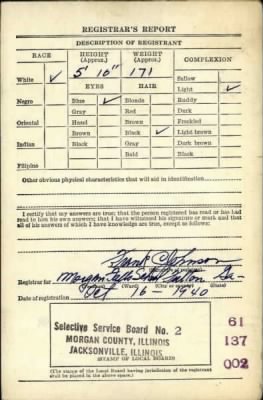 REGISTRAR'S REPORT
DESCRIPTION OF REGISTRANT
RACE HEIGHT (Approx.) WEIGHT (Approx.) COMPLEXION
White ✓ 5' 10" 171 Sallow
EYES HAIR Light ✓
Negro Blue ✓ Blonde Ruddy
Gray Red Dark
Oriental Hazel Brown Freckled
Brown Black ✓ Light brown
Indian Black Gray Dark brown
Bald Black
Filipino
Other obvious physical characteristics that will aid in identification
I certify that my answers are true; that the person registered has read or has had
read to him his own answers; that I have witnessed his signature or mark and that
all of his answers of which I have knowledge are true, except as follows:
Johnson
Registrar for Ga-
(Ward) (City or county) (State)
Date of registration Oct 16 - 1940
Selective Service Board No. 2
MORGAN COUNTY, ILLINOIS
JACKSONVILLE, ILLINOIS
(STAMP OF LOCAL BOARD)
61
137
002
(The stamp of the Local Board having jurisdiction of the registrant
shall be placed in the above space.)